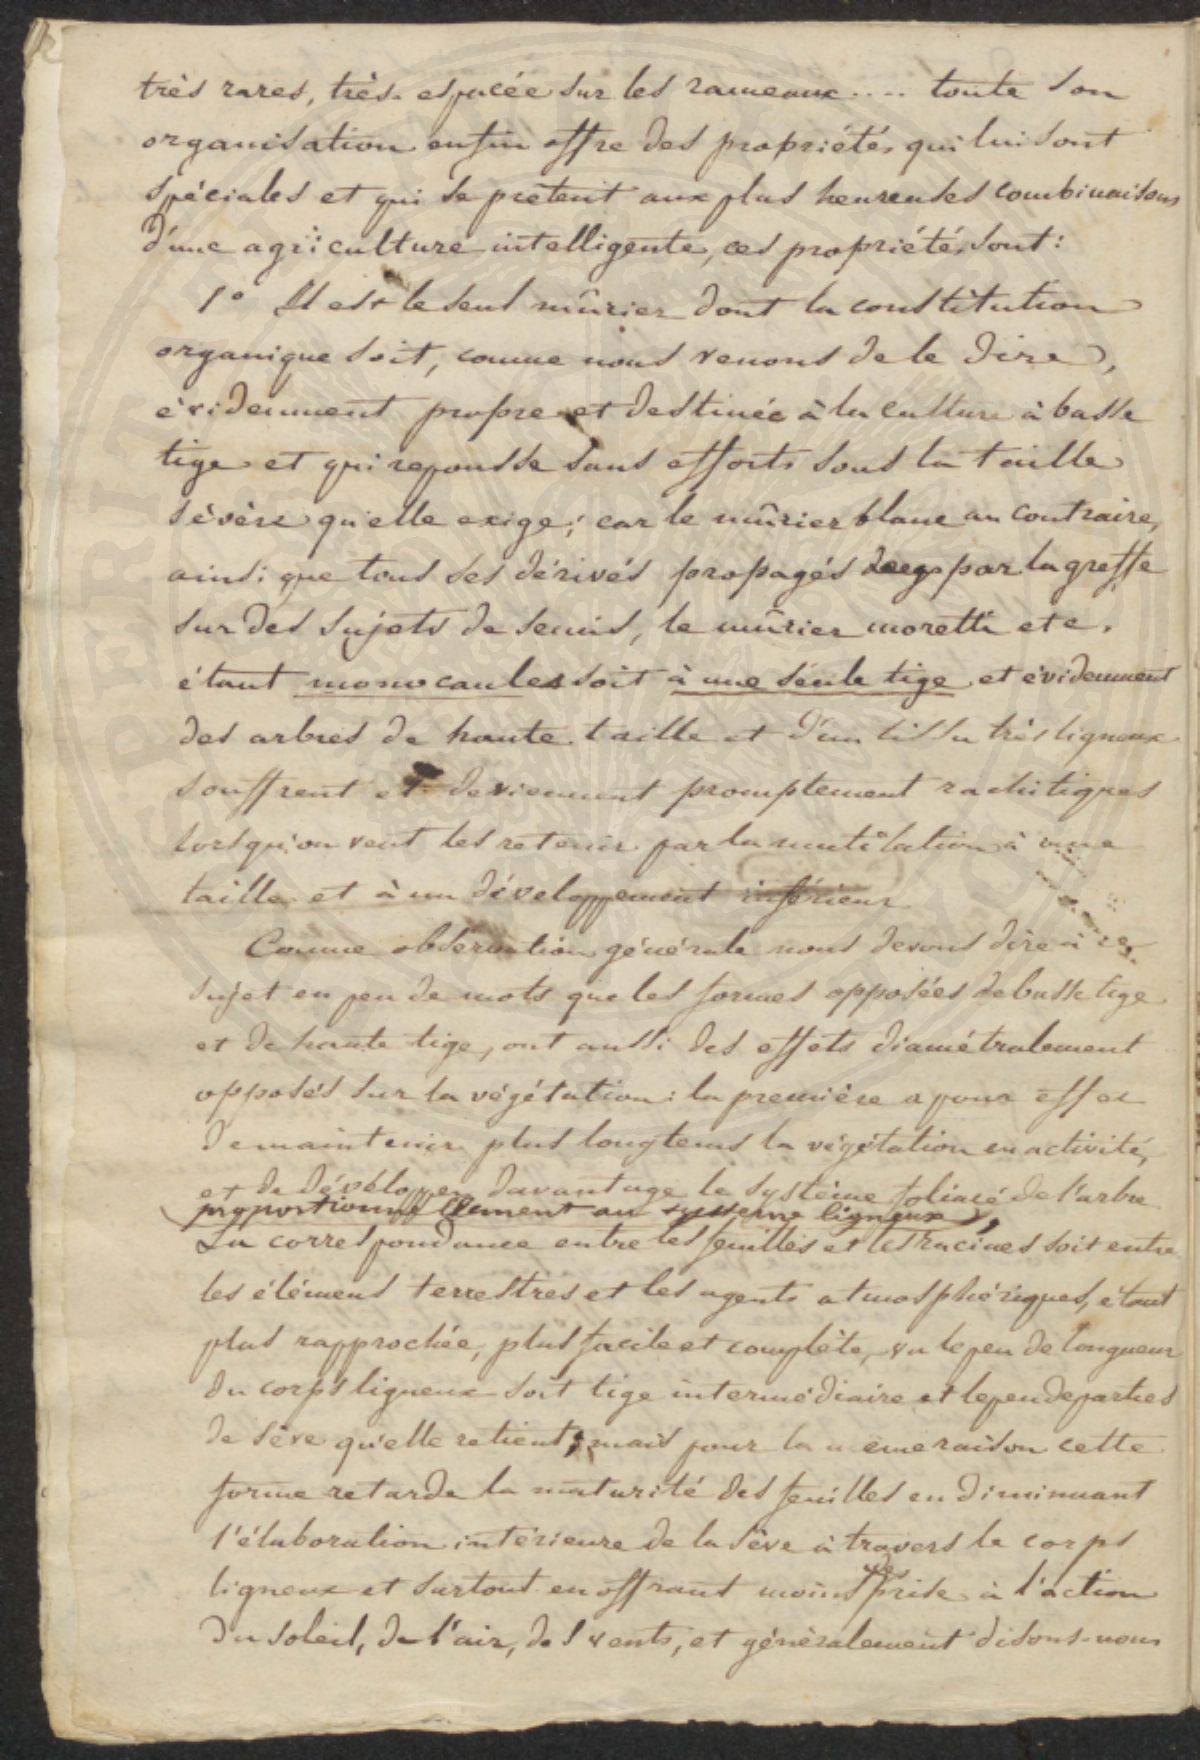 très rares, très-espacée sur les rameaux .... toute son
organisation enfin offre des propriétés qui lui sont
spéciales et qui se prêtent aux plus heureuses combinaisons
d'une agriculture intelligente, ces propriétés sont:
1° Il est le seul mûrier dont la constitution
organique soit, comme nous venons de le dire,
évidemment propre et destinée à la culture à basse
tige et qui repousse sans efforts sous la taille
sévère qu'elle exige; car le mûrier blanc au contraire,
ainsi que tous ses dérivés propagés par la greffe
sur des sujets de semis, le mûrier moretti etc.
étant monocaules soit à une seule tige et évidemment
des arbres de haute taille et d'un tissu très ligneux
souffrent et deviennent promptement rachitiques
lorsqu'on veut les retenir par la mutilation à une
taille et à un développement inférieur
Comme observation générale nous devons dire à ce
sujet en peu de mots que les formes opposées de basse tige
et de haute tige, ont aussi des effets diamétralement
opposés sur la végétation: la première a pour effet
de maintenir plus longtems la végétation en activité,
et de déveloper davantage le système foliacé de l'arbre
proportionnellement au système ligneux,
La correspondance entre les feuilles et les racines soit entre
les élémens terrestres et les agents atmosphériques, étant
plus rapprochée, plus facile et complète, vu le peu de longueur
du corps ligneux soit tige intermédiaire et le peu de parties
de sève qu'elle retient; mais pour la même raison cette
forme retarde la maturité des feuilles en diminuant
l'élaboration intérieure de la sêve à travers le corps
ligneux et surtout en offrant moins de prise à l'action
du soleil, de l'air, des vents, et généralement disons-nous
SPERIT